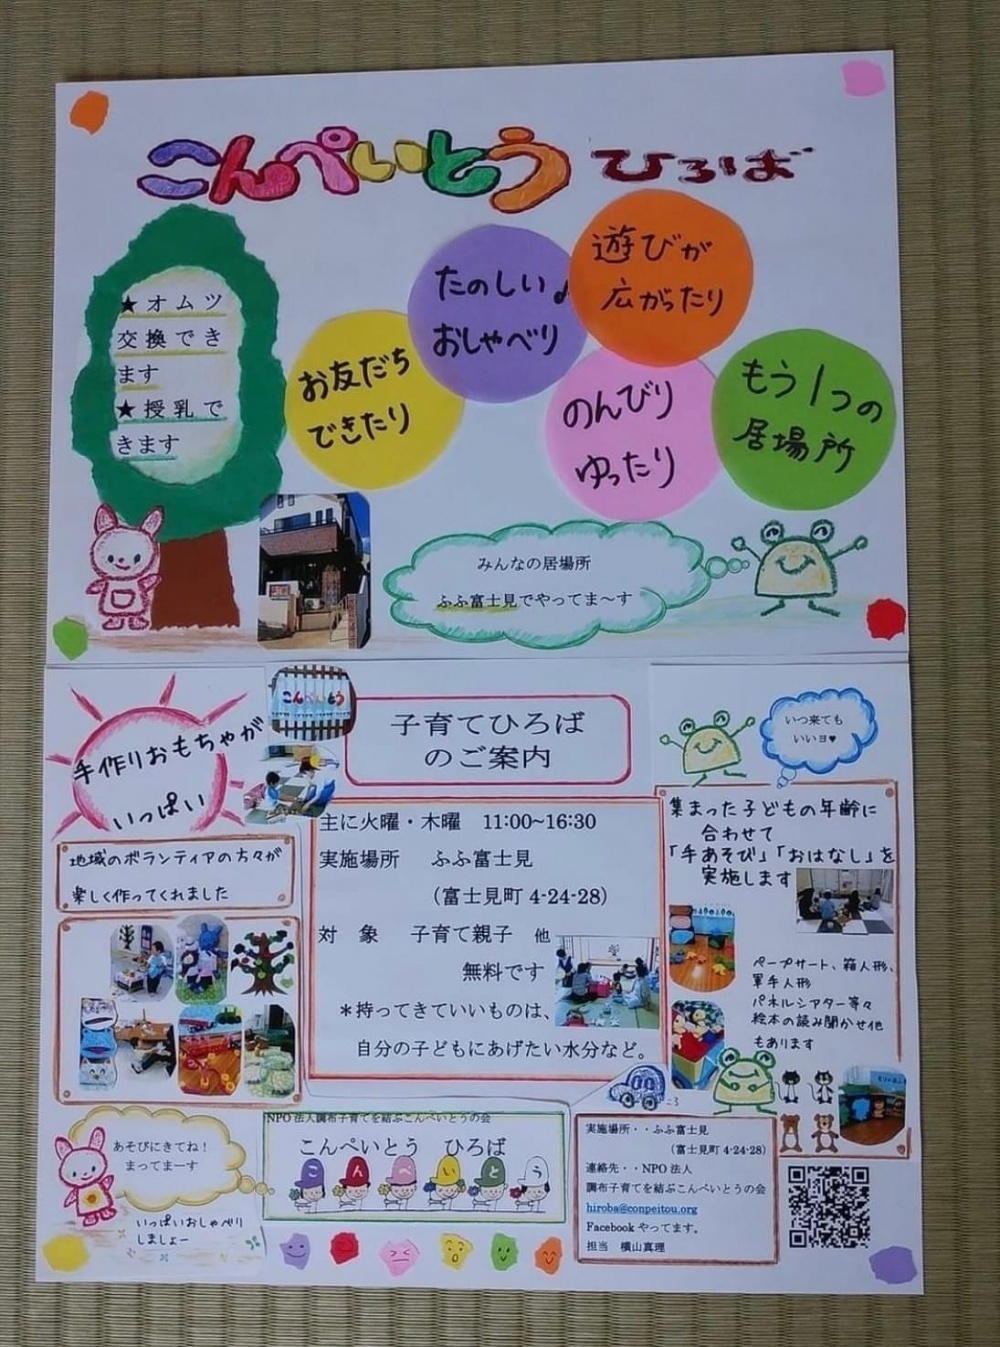 こんぺいとう ひろば
★オムツ
交換でき
ます
★授乳で
きます
お友だち
できたり
たのしい♪
おしゃべり
遊びが
広がったり
のんびり
ゆったり
もう1つの
居場所
みんなの居場所
ふふ富士見でやってま～す
手作りおもちゃが
いっぱい
こんぺいとう
子育てひろば
のご案内
いつ来ても
いいヨ♥
地域のボランティアの方々が
楽しく作ってくれました
主に火曜・木曜 11:00~16:30
実施場所 ふふ富士見
(富士見町 4-24-28)
対 象 子育て親子 他
無料です
＊持ってきていいものは、
自分の子どもにあげたい水分など。
集まった子どもの年齢に
合わせて
「手あそび」「おはなし」を
実施します
ペープサート、箱人形、
軍手人形
パネルシアター等々
絵本の読み聞かせ他
もあります
あそびにきてね!
まってまーす
いっぱいおしゃべり
しましょー
NPO法人調布子育てを結ぶこんぺいとうの会
こんぺいとう ひろば
こんぺいとう
実施場所・・ふふ富士見
(富士見町 4-24-28)
連絡先・・NPO 法人
調布子育てを結ぶこんぺいとうの会
hiroba@conpeitou.org
Facebook やってます。
担当 横山真理